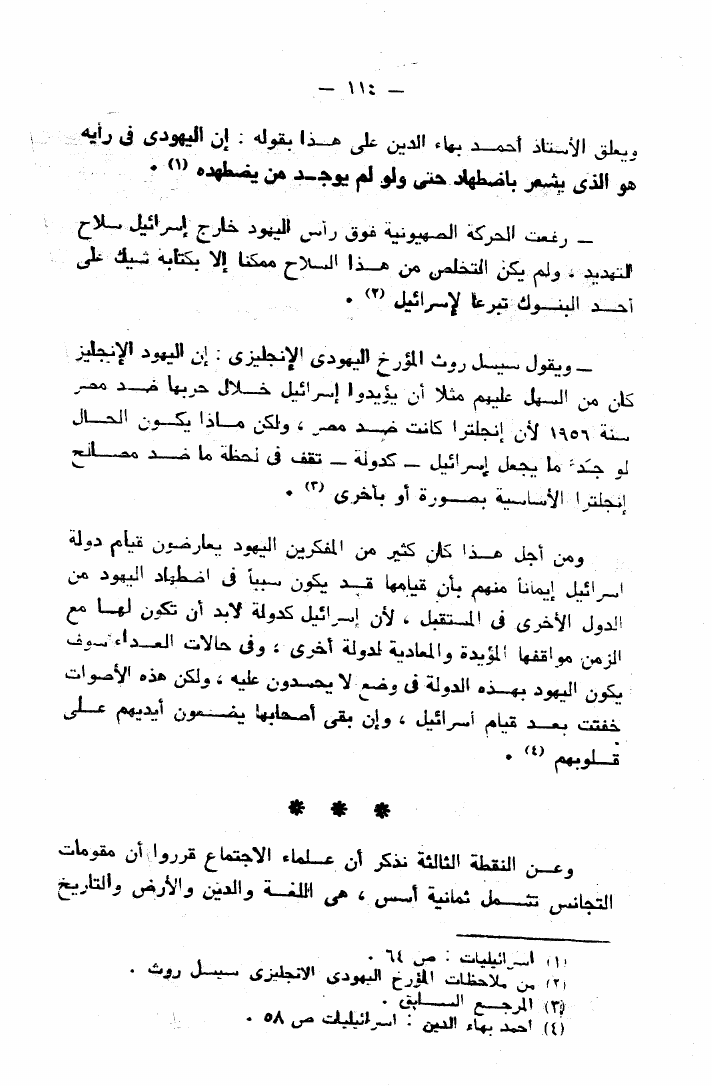 — ١١٤ —
ويعلق الأستاذ أحمد بهاء الدين على هذا بقوله : إن اليهودى فى رأيه
هو الذى يشعر باضطهاد حتى ولو لم يوجد من يضطهده (١) .
— رفعت الحركة الصهيونية فوق رأس اليهود خارج إسرائيل سلاح
التهديد ، ولم يكن التخلص من هذا السلاح ممكنا إلا بكتابة شيك على
أحد البنوك تبرعا لإسرائيل (٢) .
— ويقول سيسل روث المؤرخ اليهودى الإنجليزى : إن اليهود الإنجليز
كان من السهل عليهم مثلا أن يؤيدوا إسرائيل خلال حربها ضد مصر
سنة ١٩٥٦ لأن إنجلترا كانت ضد مصر ، ولكن ماذا يكون الحال
لو جدّ ما يجعل إسرائيل — كدولة — تقف فى لحظة ما ضد مصالح
إنجلترا الأساسية بصورة أو بأخرى (٣) .
ومن أجل هذا كان كثير من المفكرين اليهود يعارضون قيام دولة
اسرائيل إيماناً منهم بأن قيامها قد يكون سبباً فى اضطهاد اليهود من
الدول الأخرى فى المستقبل ، لأن إسرائيل كدولة لابد أن تكون لها مع
الزمن مواقفها المؤيدة والمعادية لدولة أخرى ، وفى حالات العداء سوف
يكون اليهود بهذه الدولة فى وضع لا يحسدون عليه ، ولكن هذه الأصوات
خفتت بعد قيام أسرائيل ، وإن بقى أصحابها يضعون أيديهم على
قلوبهم (٤) .
* * *
وعن النقطة الثالثة نذكر أن علماء الاجتماع قرروا أن مقومات
التجانس تشمل ثمانية أسس ، هى اللغة والدين والأرض والتاريخ
(١) أسرائيليات : ص ٦٤ .
(٢) من ملاحظات المؤرخ اليهودى الانجليزى سيسل روث .
(٣) المرجع السابق .
(٤) احمد بهاء الدين : اسرائيليات ص ٥٨ .